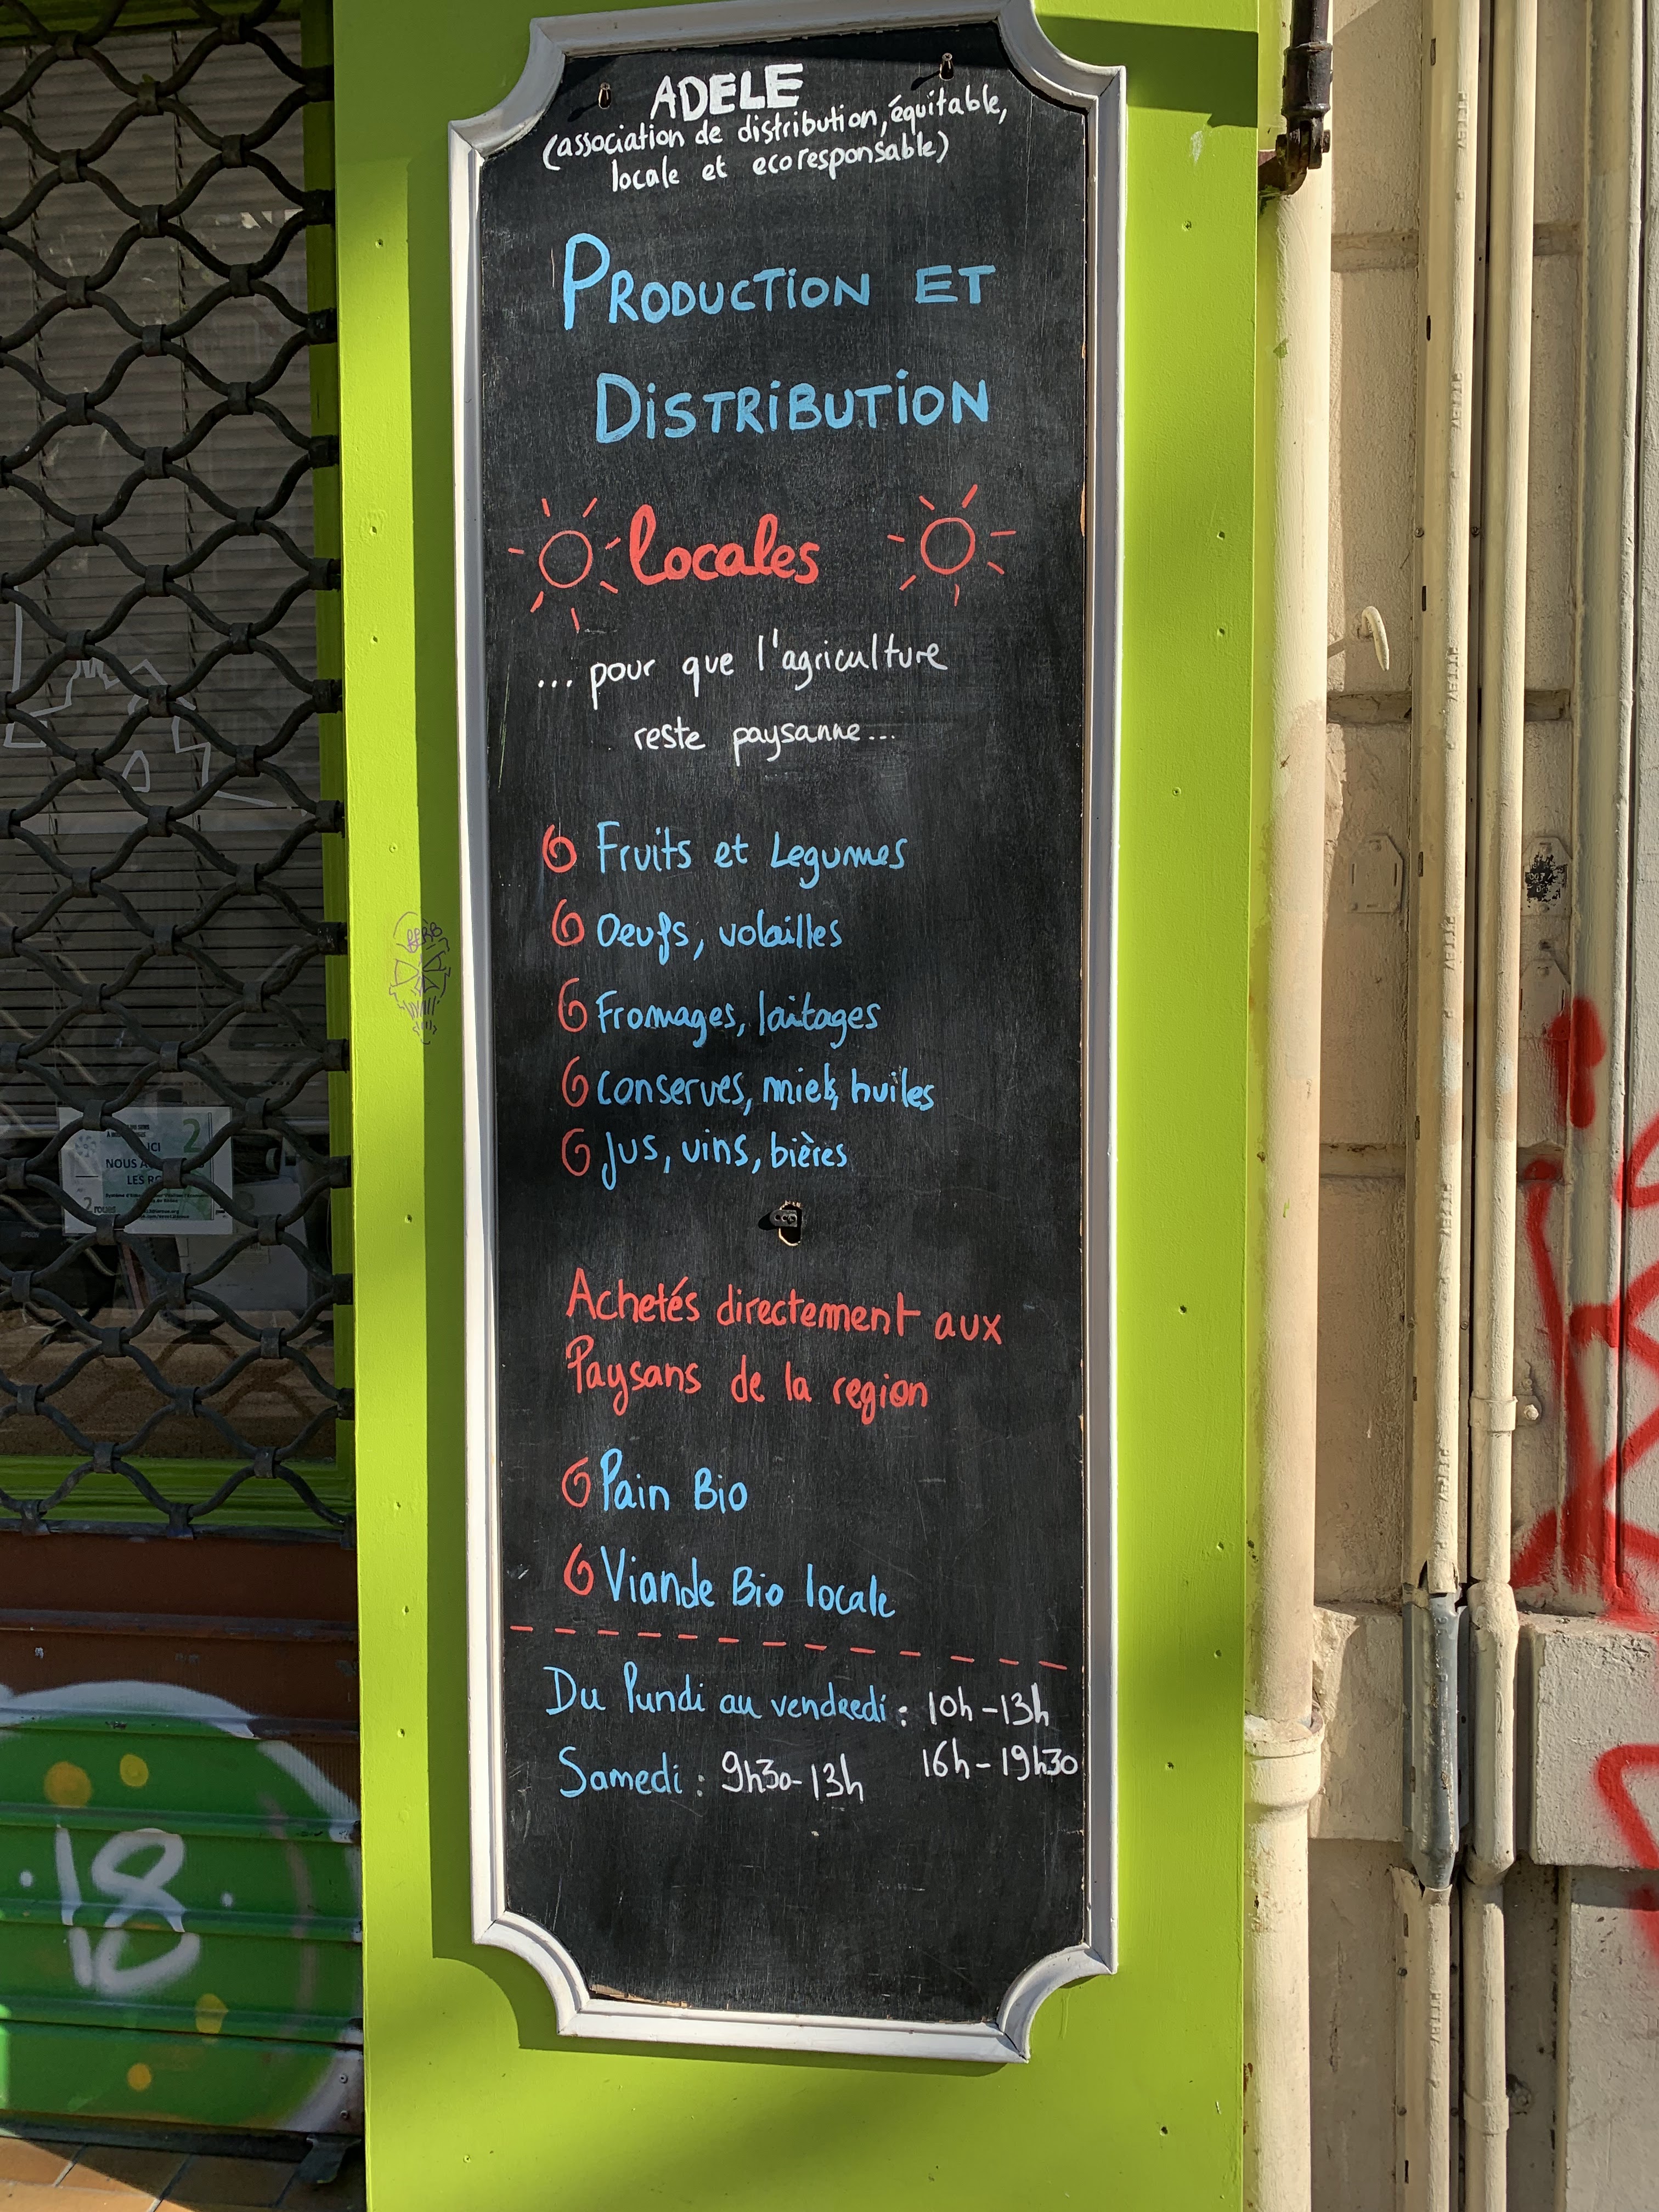 ADELE
(association de distribution, équitable,
locale et ecoresponsable)
PRODUCTION ET
DISTRIBUTION
locales
... pour que l'agriculture
reste paysanne...
Fruits et Legumes
Oeufs, volailles
Fromages, laitages
conserves, miels, huiles
Jus, vins, bières
Achetés directement aux
Paysans de la region
Pain Bio
Viande Bio locale
Du lundi au vendredi : 10h-13h
16h-19h30
Samedi : 9h30-13h
2
ICI
NOUS
LES
18